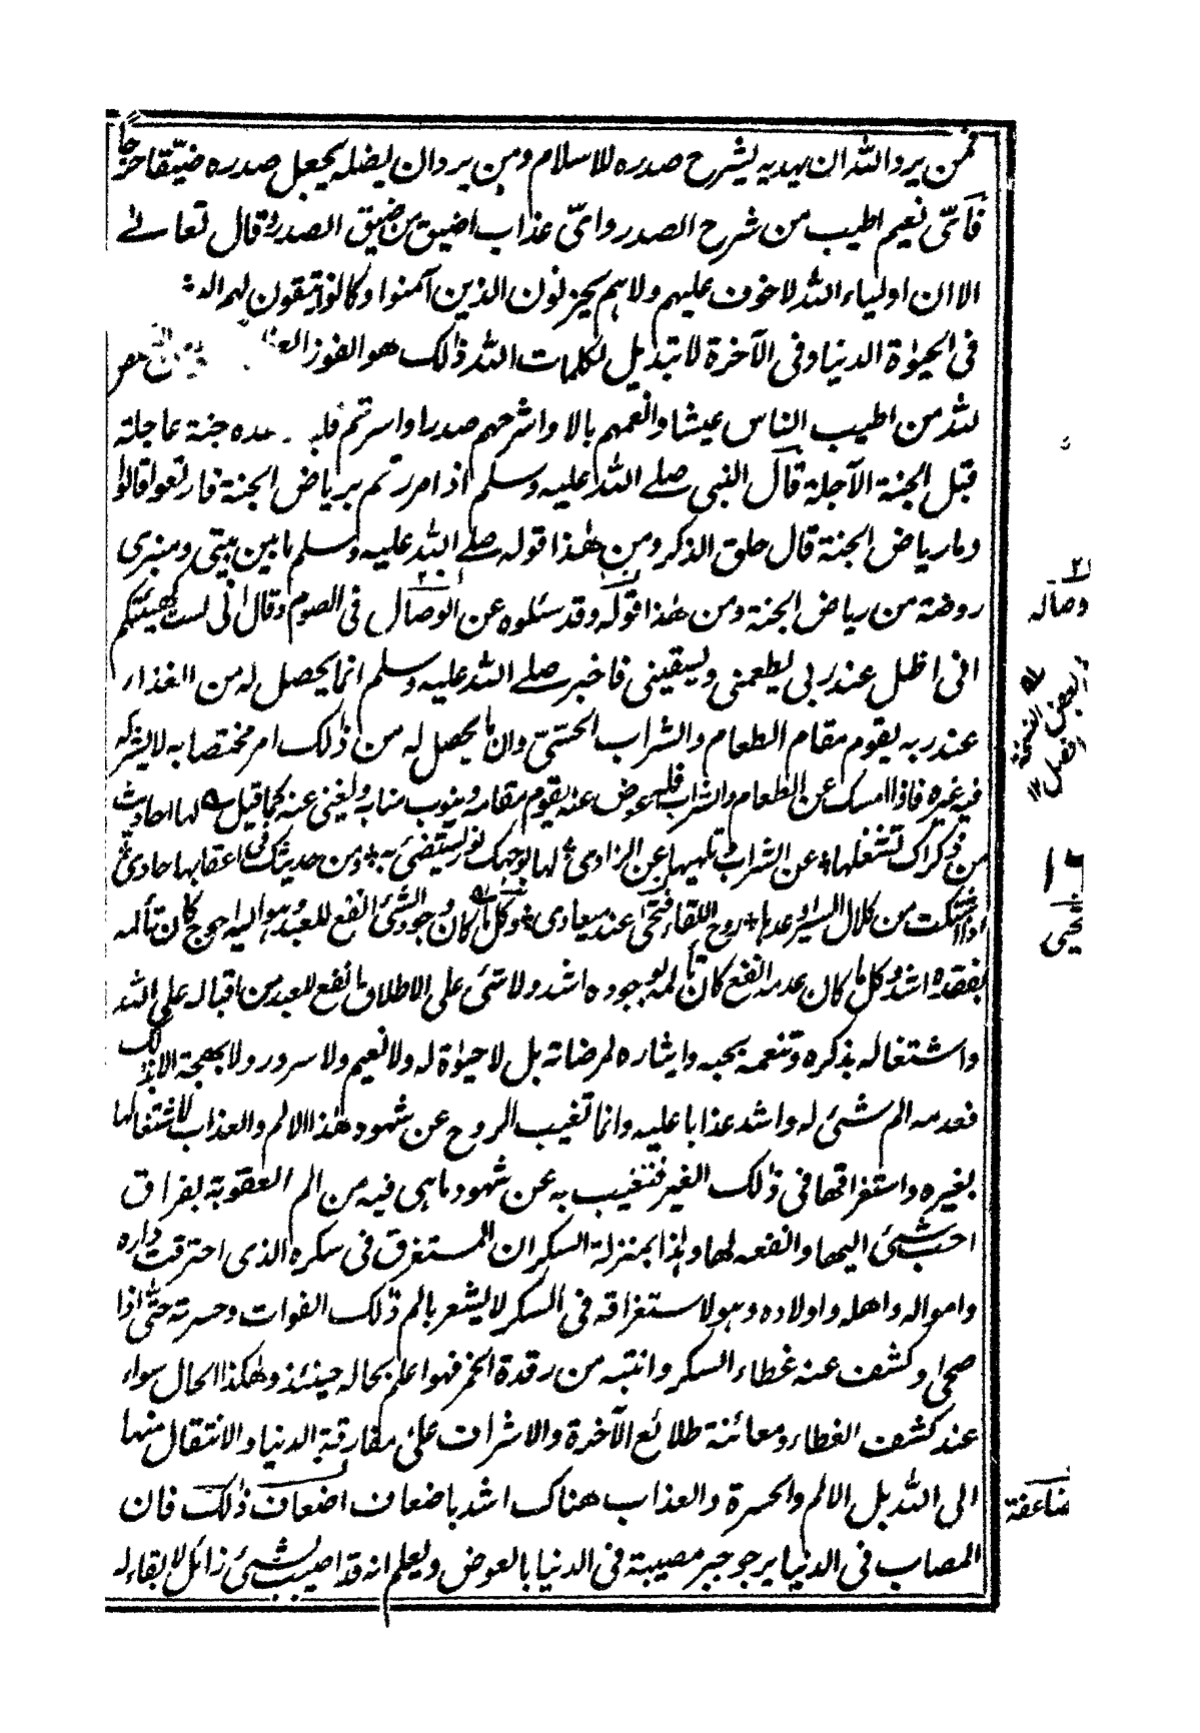 فمن يرد الله ان يهديه يشرح صدره للاسلام ومن يرد ان يضله يجعل صدره ضيّقا حرجا
فأىّ نعيم اطيب من شرح الصدر واىّ عذاب اضيق من ضيق الصدر وقال تعالىٰ
الا ان اولياء الله لا خوف عليهم ولا هم يحزنون الذين آمنوا وكانوا يتقون لهم الـ
فى الحيوٰة الدنيا وفى الآخرة لا تبديل لكلمات الله ذٰلك هو الفوز
لله من اطيب الناس عيشا وانعمهم بالا واشرحهم صدرا واسرتم جنة عاجلة
قبل الجنة الآجلة قال النبى صلے الله عليه وسلم اذا مررتم برياض الجنة فارتعوا قالوا
وما رياض الجنة قال حلق الذكر ومن هٰذا قوله صلے الله عليه وسلم ما بين بيتى ومنبرى
روضة من رياض الجنة ومن هٰذا قوله وقد سئلوه عن الوصال فى الصوم وقال انى لست كهيئتكم
انى اظل عند ربى يطعمنى ويسقينى فاخبر صلے الله عليه وسلم انما يحصل له من الغذاء
عند ربه يقوم مقام الطعام والشراب الحسّى وان ما يحصل له من ذٰلك امر مختصا به لا يشركه
فيه غيره فاذا امسك عن الطعام والشراب فله عوض عنه يقوم مقامه وينوب منابه ويغنى عنه كما قيل لها احاديث
من ذكراك تشغلها عن الشراب وتلهيها عن الزاد لها بوجهك نور يستضئ به ومن حديثك فى اعقابها حادى
اذا اشتكت من كلال السير اوعدها روح اللقاء فتحيى عند ميعادى وكل ما كان وجود الشئ انفع للعبد وهو اليه احوج كان تألمه
بفقده اشد وكل ما كان عدمه انفع كان تألمه بوجوده اشد ولا شئ على الاطلاق انفع للعبد من اقباله على الله
واشتغاله بذكره وتنعمه بحبه وايثاره لمرضاته بل لا حيوٰة له ولا نعيم ولا سرور ولا بهجة الا بذلك
فعدمه الم شئ له واشد عذابا عليه وانما تغيب الروح عن شهود هٰذا الالم والعذاب لاشتغالها
بغيره واستغراقها فى ذٰلك الغير فتغيب به عن شهود ما هى فيه من الم العقوبة بفراق
احب شئ اليها وانفعه لها وهٰذا بمنزلة السكران المستغرق فى سكره الذى احترقت داره
وامواله واهله واولاده وهو لاستغراقه فى السكر لا يشعر بالم ذٰلك الفوات وحسرته حتى اذا
صحا وكشف عنه غطاء السكر وانتبه من رقدة الخمر فهو اعلم بحاله حينئذ وهٰكذا الحال سواء
عند كشف الغطاء ومعائنة طلائع الآخرة والاشراف على مفارقة الدنيا والانتقال منها
الى الله بل الالم والحسرة والعذاب هناك اشد باضعاف اضعاف ذٰلك فان
المصاب فى الدنيا يرجو جبر مصيبة فى الدنيا بالعوض ويعلم انه قد اصيب بشئ زائل لا بقاء له
وصاله